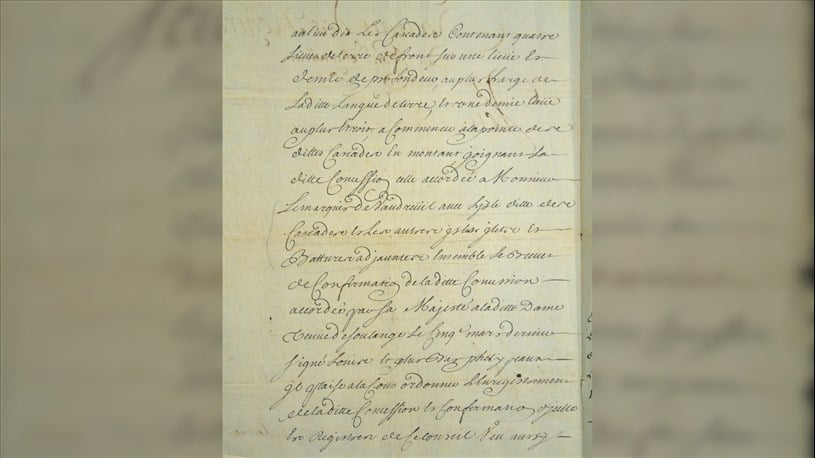 au lieu dit Les Cascades Contenant quatre
Lieües de terre de front sur une lieüe et
demie de profondeur, au plus Large de
Ladite Langue de terre, et une demie lieüe
au plus etroit, a Commencer a la pointe desd
dittes Cascades En montant joignant La
ditte Concession celle accordée a Monsieur
Le marquis de Vaudreuil avec L'isle ditte des
Cascades et Les autres isles islets et
Batturres adjacentes Ensemble Le Brevet
de Confirmation de la ditte Concession
accordée par Sa Majesté a la ditte Dame
Veuve de Soulange Le Cinq.e mars dernier
signé Louis et plus bas phelypeaux
a la Cour ordonner L'Enregistrement
de la ditte Concession et Confirmation
Es Registres de Ce Conseil Veu aussy